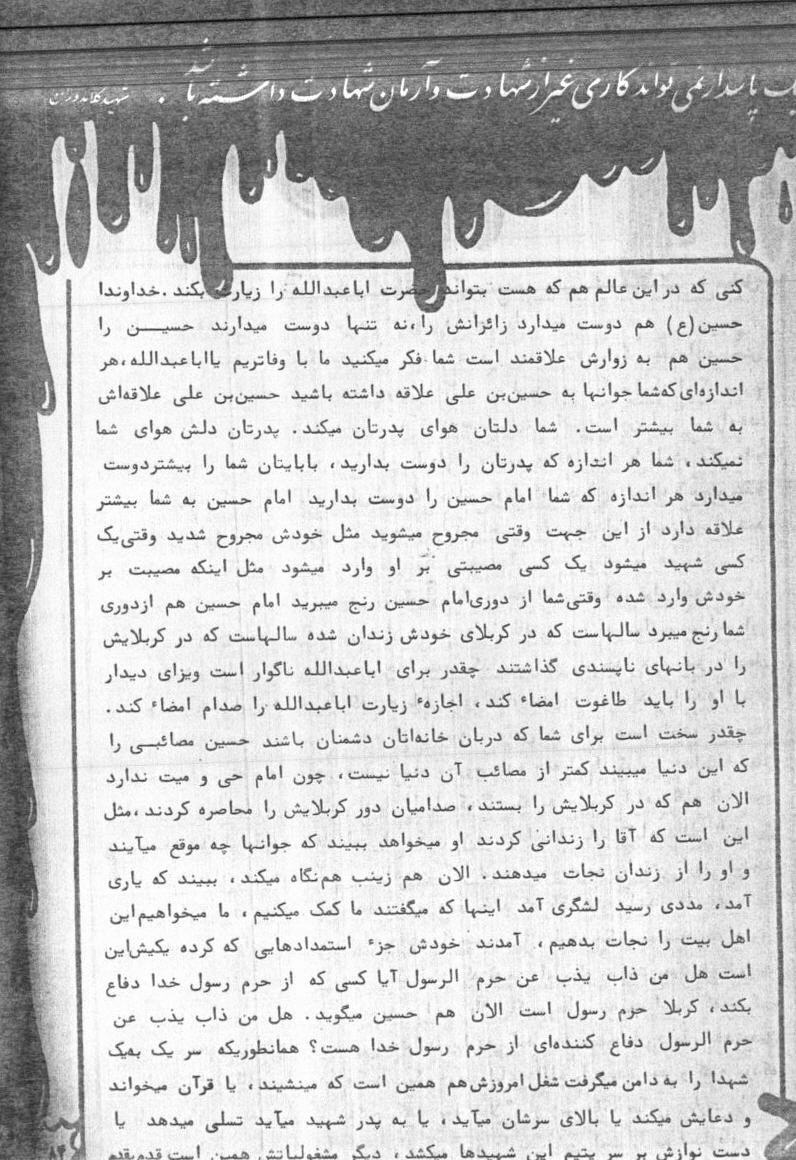 یک پاسدار نمی تواند کاری غیر از شهادت و آرمان شهادت داشته باشد . شهید کلاهدوزان
کنی که در این عالم هم که هست بتواند حضرت اباعبدالله را زیارت بکند . خداوندا
حسین (ع) هم دوست میدارد زائرانش را ،نه تنها دوست میدارند حسیـــن را
حسین هم به زوارش علاقمند است شما فکر میکنید ما با وفاتریم یااباعبدالله ،هر
اندازه‌ای که‌شما جوانها به حسین‌بن علی علاقه داشته باشید حسین‌بن علی علاقه‌اش
به شما بیشتر است. شما دلتان هوای پدرتان میکند. پدرتان دلش هوای شما
نمیکند، شما هر اندازه که پدرتان را دوست بدارید، بابایتان شما را بیشتردوست
میدارد هر اندازه که شما امام حسین را دوست بدارید امام حسین به شما بیشتر
علاقه دارد از این جهت وقتی مجروح میشوید مثل خودش مجروح شدید وقتی‌یک
کسی شهید میشود یک کسی مصیبتی بر او وارد میشود مثل اینکه مصیبت بر
خودش وارد شده وقتی‌شما از دوری‌امام حسین رنج میبرید امام حسین هم ازدوری
شما رنج میبرد سالهاست که در کربلای خودش زندان شده سالهاست که در کربلایش
را در بانهای ناپسندی گذاشتند چقدر برای اباعبدالله ناگوار است ویزای دیدار
با او را باید طاغوت امضاء کند، اجازهٔ زیارت اباعبدالله را صدام امضاء کند.
چقدر سخت است برای شما که دربان خانه‌اتان دشمنان باشند حسین مصائبـی را
که این دنیا میبیند کمتر از مصائب آن دنیا نیست، چون امام حی و میت ندارد
الان هم که در کربلایش را بستند، صدامیان دور کربلایش را محاصره کردند،مثل
این است که آقا را زندانی کردند او میخواهد ببیند که جوانها چه موقع میآیند
و او را از زندان نجات میدهند. الان هم زینب هم‌نگاه میکند، ببیند که یاری
آمد، مددی رسید لشگری آمد اینها که میگفتند ما کمک میکنیم، ما میخواهیم‌این
اهل بیت را نجات بدهیم، آمدند خودش جزء استمدادهایی که کرده یکیش‌این
است هل من ذاب یذب عن حرم الرسول آیا کسی که از حرم رسول خدا دفاع
بکند، کربلا حرم رسول است الان هم حسین میگوید. هل من ذاب یذب عن
حرم الرسول دفاع کننده‌ای از حرم رسول خدا هست؟ همانطوریکه سر یک به‌یک
شهدا را به دامن میگرفت شغل امروزش‌هم همین است که مینشیند، یا قرآن میخواند
و دعایش میکند یا بالای سرشان میآید، یا به پدر شهید میآید تسلی میدهد یا
دست نوازش بر سر یتیم این شهیدها میکشد، دیگر مشغولیاتش همین است قدم‌بقدم